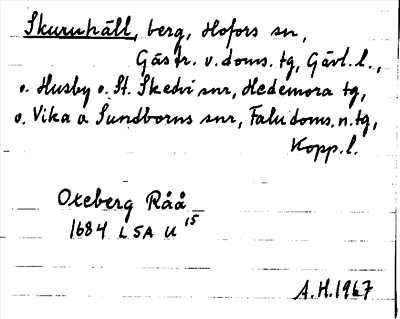 Skuruhäll, berg, Hofors sn,
Gästr. v. doms. tg, Gävl. l.,
o. Husby o. St. Skedvi snr, Hedemora tg,
o. Vika o Sundborns snr, Falu doms. n. tg,
Kopp. l.
Oxeberg Råå
1684 LSA U 15
A.H. 1967